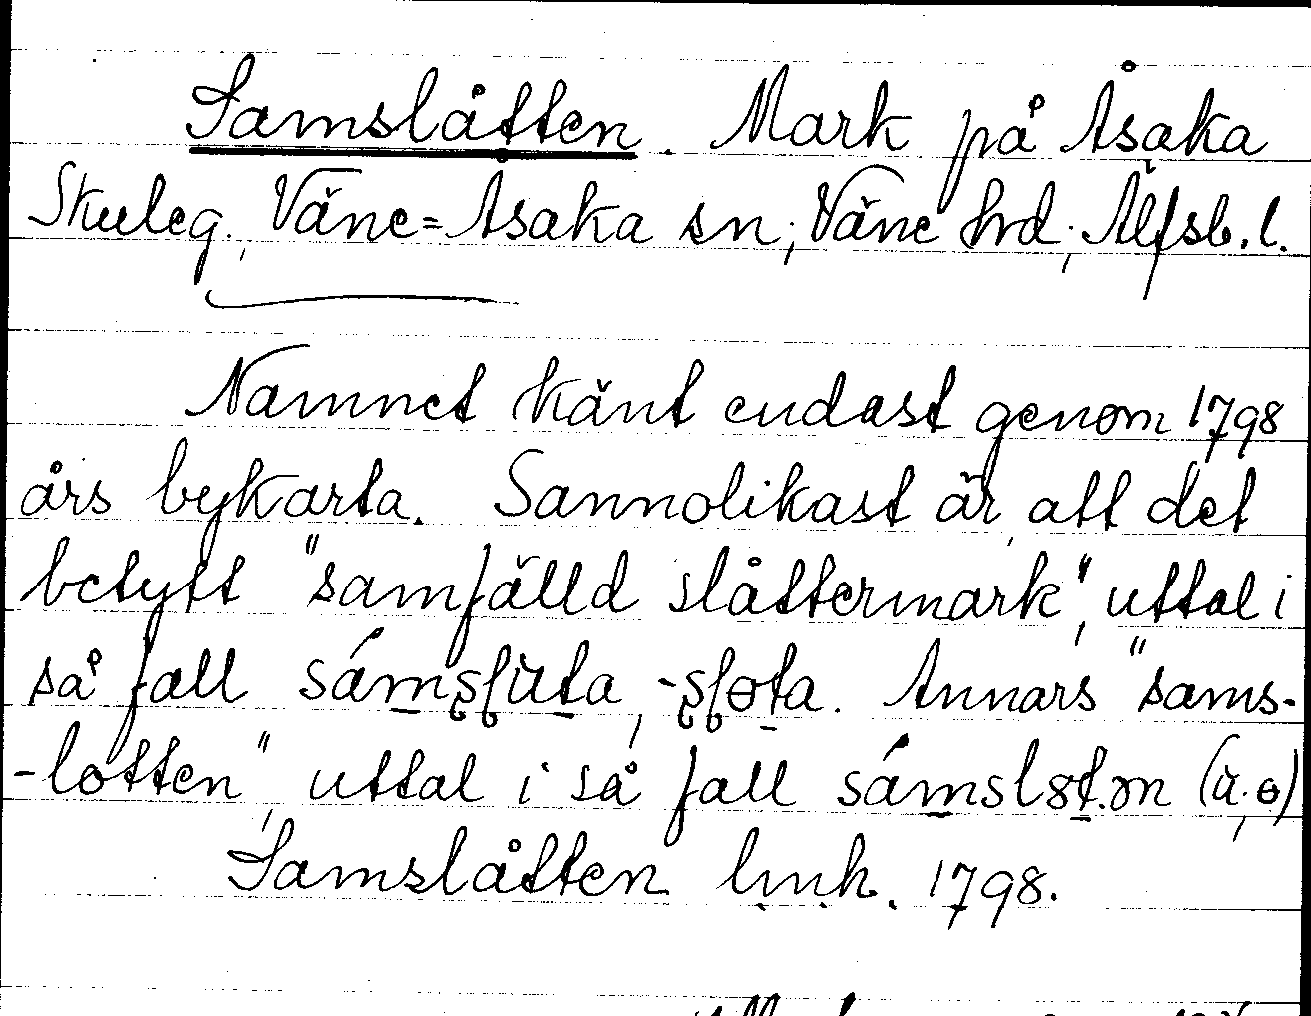 Samslåtten. Mark på Åsaka
Skuleg., Väne=Åsaka sn; Väne hrd; Älfsb. l.
Namnet känt endast genom 1798
års bykarta. Sannolikast är, att det
betytt "samfälld slåttermark", uttal i
så fall
Annars "sams-
-lotten", uttal i så fall
Samslåtten lmh. 1798.